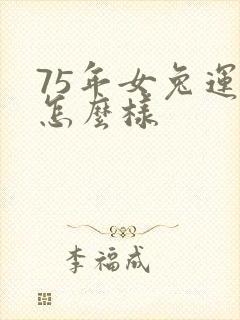 75年女兔運
怎麼樣
李福成